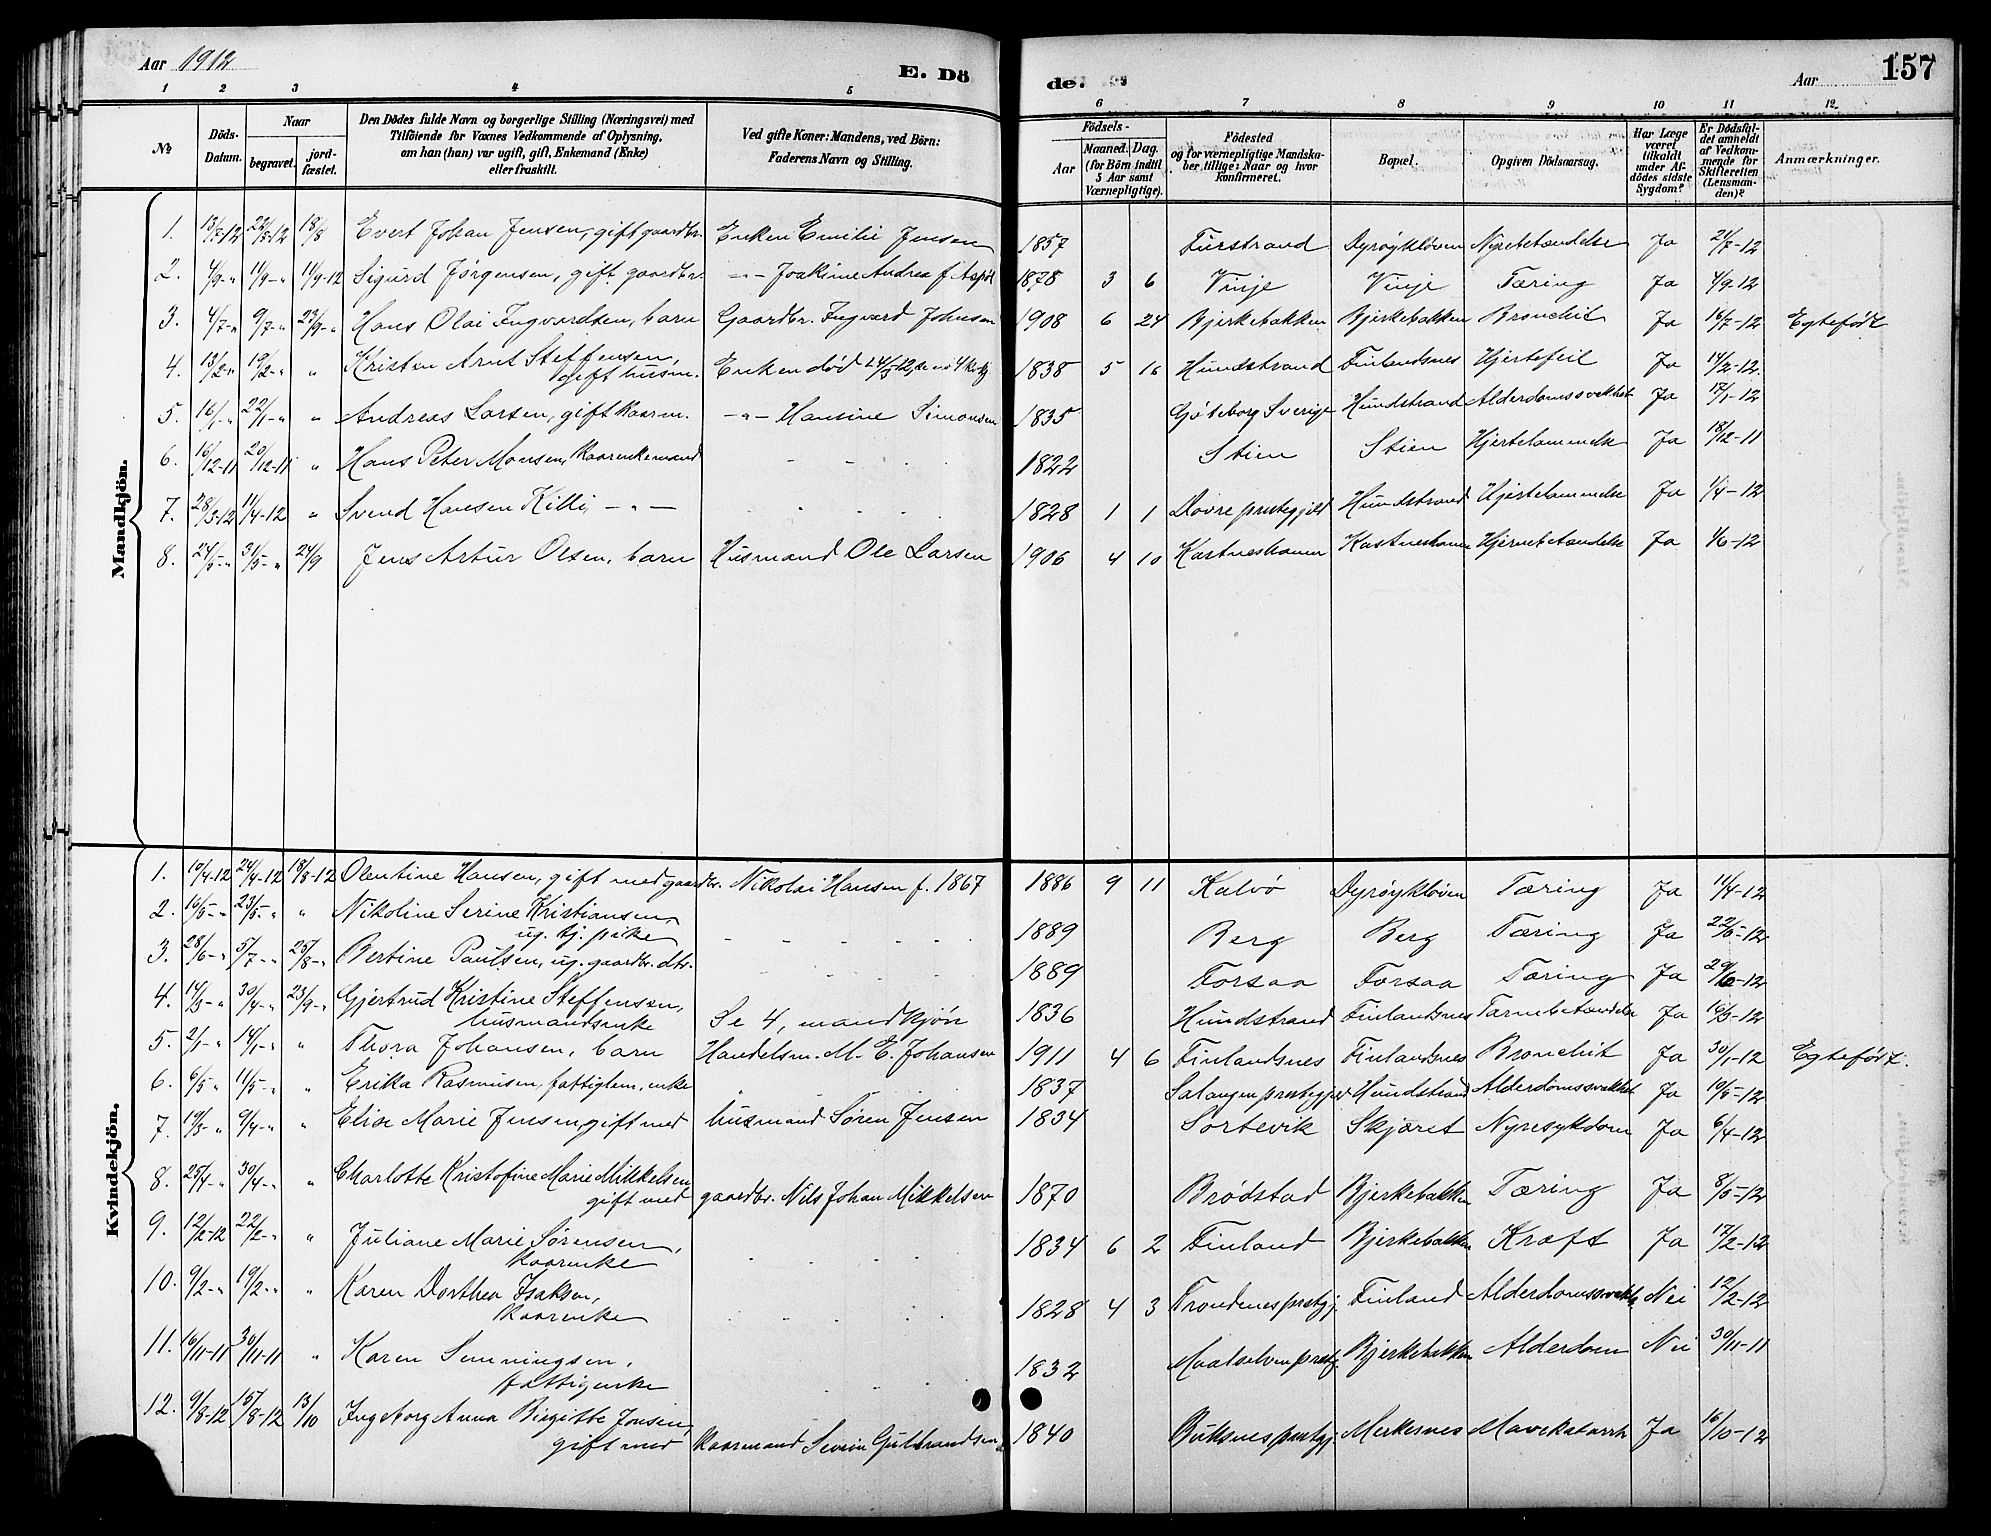 Aar 1912 E. Dö de. Aar 157
1 2 3 4 5 6 7 8 9 10 11 12
№ Döds-Datum. Naar begravet. jordfæstet. Den Dödes fulde Navn og borgerlige Stilling (Næringsvei) med Tilföiende for Voxnes Vedkommende af Oplysning, om han (hun) var ugift, gift, Enkemand (Enke) eller fraskilt. Ved gifte Koner: Mandens, ved Börn: Faderens Navn og Stilling. Födsels- Aar Maaned. Dag. (for Börn indtil 5 Aar samt Værnepligtige). Födested og for værnepligtige Mandskaber tillige: Naar og hvor konfirmeret. Bopæl. Opgiven Dödsaarsag. Har Læge været tilkaldt under Afdödes sidste Sygdom? Er Dödsfaldet anmeldt af Vedkommende for Skifteretten (Lensmanden)? Anmærkninger.
Mandkjön.
1. 13/8-12 22/8-12 18/8 Evert Johan Jensen, gift gaardbr. Enken Emilie Jensen 1857 Furstrand Dyröykloven Nyrebetændelse Ja 21/7-12
2. 4/9-" 11/9-" 11/9-12 Sigurd Jørgensen, gift gaardbr. -"- Joakime Andrea f. 1878 3 6 Vinje Vinje Tæring Ja 4/9-12
3. 4/7-" 9/7-" 23/9-" Hans Olai Ingvardsen, barn Gaardbr. Ingvard Johnsen 1908 6 24 Bjerkebakken Bjerkebakken Bronchit Ja 16/7-12 Egtefödt
4. 13/2-" 19/2-" " Kristen Arnt Steffensen, gift husm. Enken död 14/3-12, se no 4 kvkj 1838 5 16 Hundstrand Finlandsnes Hjertefeil Ja 14/2-12.
5. 16/1-" 22/1-" " Andreas Larsen, gift kaarm. -"- Hansine Simonsen 1835 Gøteborg Sverige Hundstrand Alderdomssvakhet Ja 17/1-12
6. 16/12-11 20/12-11 " Hans Peter Monsen, kaarenkemand 1822 Stien Stien Hjertelammelse Ja 18/12-11
7. 28/3-12 11/4-12 " Svend Hansen Killi, -"- 1828 1 1 Dovre prestegjeld Hundstrand Hjertelammelse Ja 1/4-12
8. 24/5-" 31/5-" 24/9 Jens Artur Olsen, barn Husmand Ole Larsen 1906 4 10 Kastneshamn Kastneshamn Hjernebetændelse Ja 1/6-12
Kvindekjön.
1. 10/4-12 24/4-12 18/8-12 Olentine Hansen, gift med gaardbr. Nikolai Hansen f. 1867 1886 9 11 Kalvö Dyröykloven Tæring Ja 11/4-12
2. 16/5-" 23/5-" " Nikoline Serine Kristiansen, ug. tj. pike 1889 Berg Berg Tæring Ja 22/5-12
3. 28/6-" 5/7-" 25/8-" Bertine Paulsen, ug. gaardbr. dtr. 1889 Forsaa Forsaa Tæring Ja 29/6-12
4. 14/3-" 30/4-" 23/9-" Gjertrud Kristine Steffensen, husmandsenke Se 4, mandkjön 1836 Hundstrand Finlandsnes Tarmbetændelse Ja 19/3-12
5. 2/1-" 14/1-" " Thora Johansen, barn Handelsm. M. E. Johansen 1911 4 6 Finlandsnes Finlandsnes Bronchit Ja 30/1-12 Egtefödt.
6. 6/5-" 11/5-" " Erika Rasmusen, fattiglem, enke 1837 Salangen prestegjeld Hundstrand Alderdomssvakhet Ja 10/5-12
7. 19/3-" 9/4-" " Elise Marie Jensen, gift med husmand Søren Jensen 1834 Sørtevik Skjæret Nyresykdom Ja 6/4-12
8. 25/4-" 30/4-" " Charlotte Kristofine Marie Mikkelsen gift med gaardbr. Nils Johan Mikkelsen 1870 Brødstad Bjerkebakken Tæring Ja 8/5-12
9. 12/2-12 22/2-" " Juliane Marie Sørensen, kaarenke 1834 6 2 Finland Bjerkebakken Kræft Ja 17/2-12
10. 9/2-" 19/2-" " Karen Dorthea Isaksen, kaarenke 1828 4 3 Trondenes prestgj. Finland Alderdomssvakh. Nei 12/2-12
11. 16/11-11 30/11-11 " Karen Semmingsen, fattigenke 1832 Maalselven prestgj. Bjerkebakken Alderdom Nei 30/11-11
12. 9/8-12 15/8-12 13/10 Ingeborg Anna Birgitte Jensen, gift med kaarmand Sevrin Guldbrandsen 1840 Buksnes prestgj. Merkesnes Mavekatarrh Ja 16/10-12